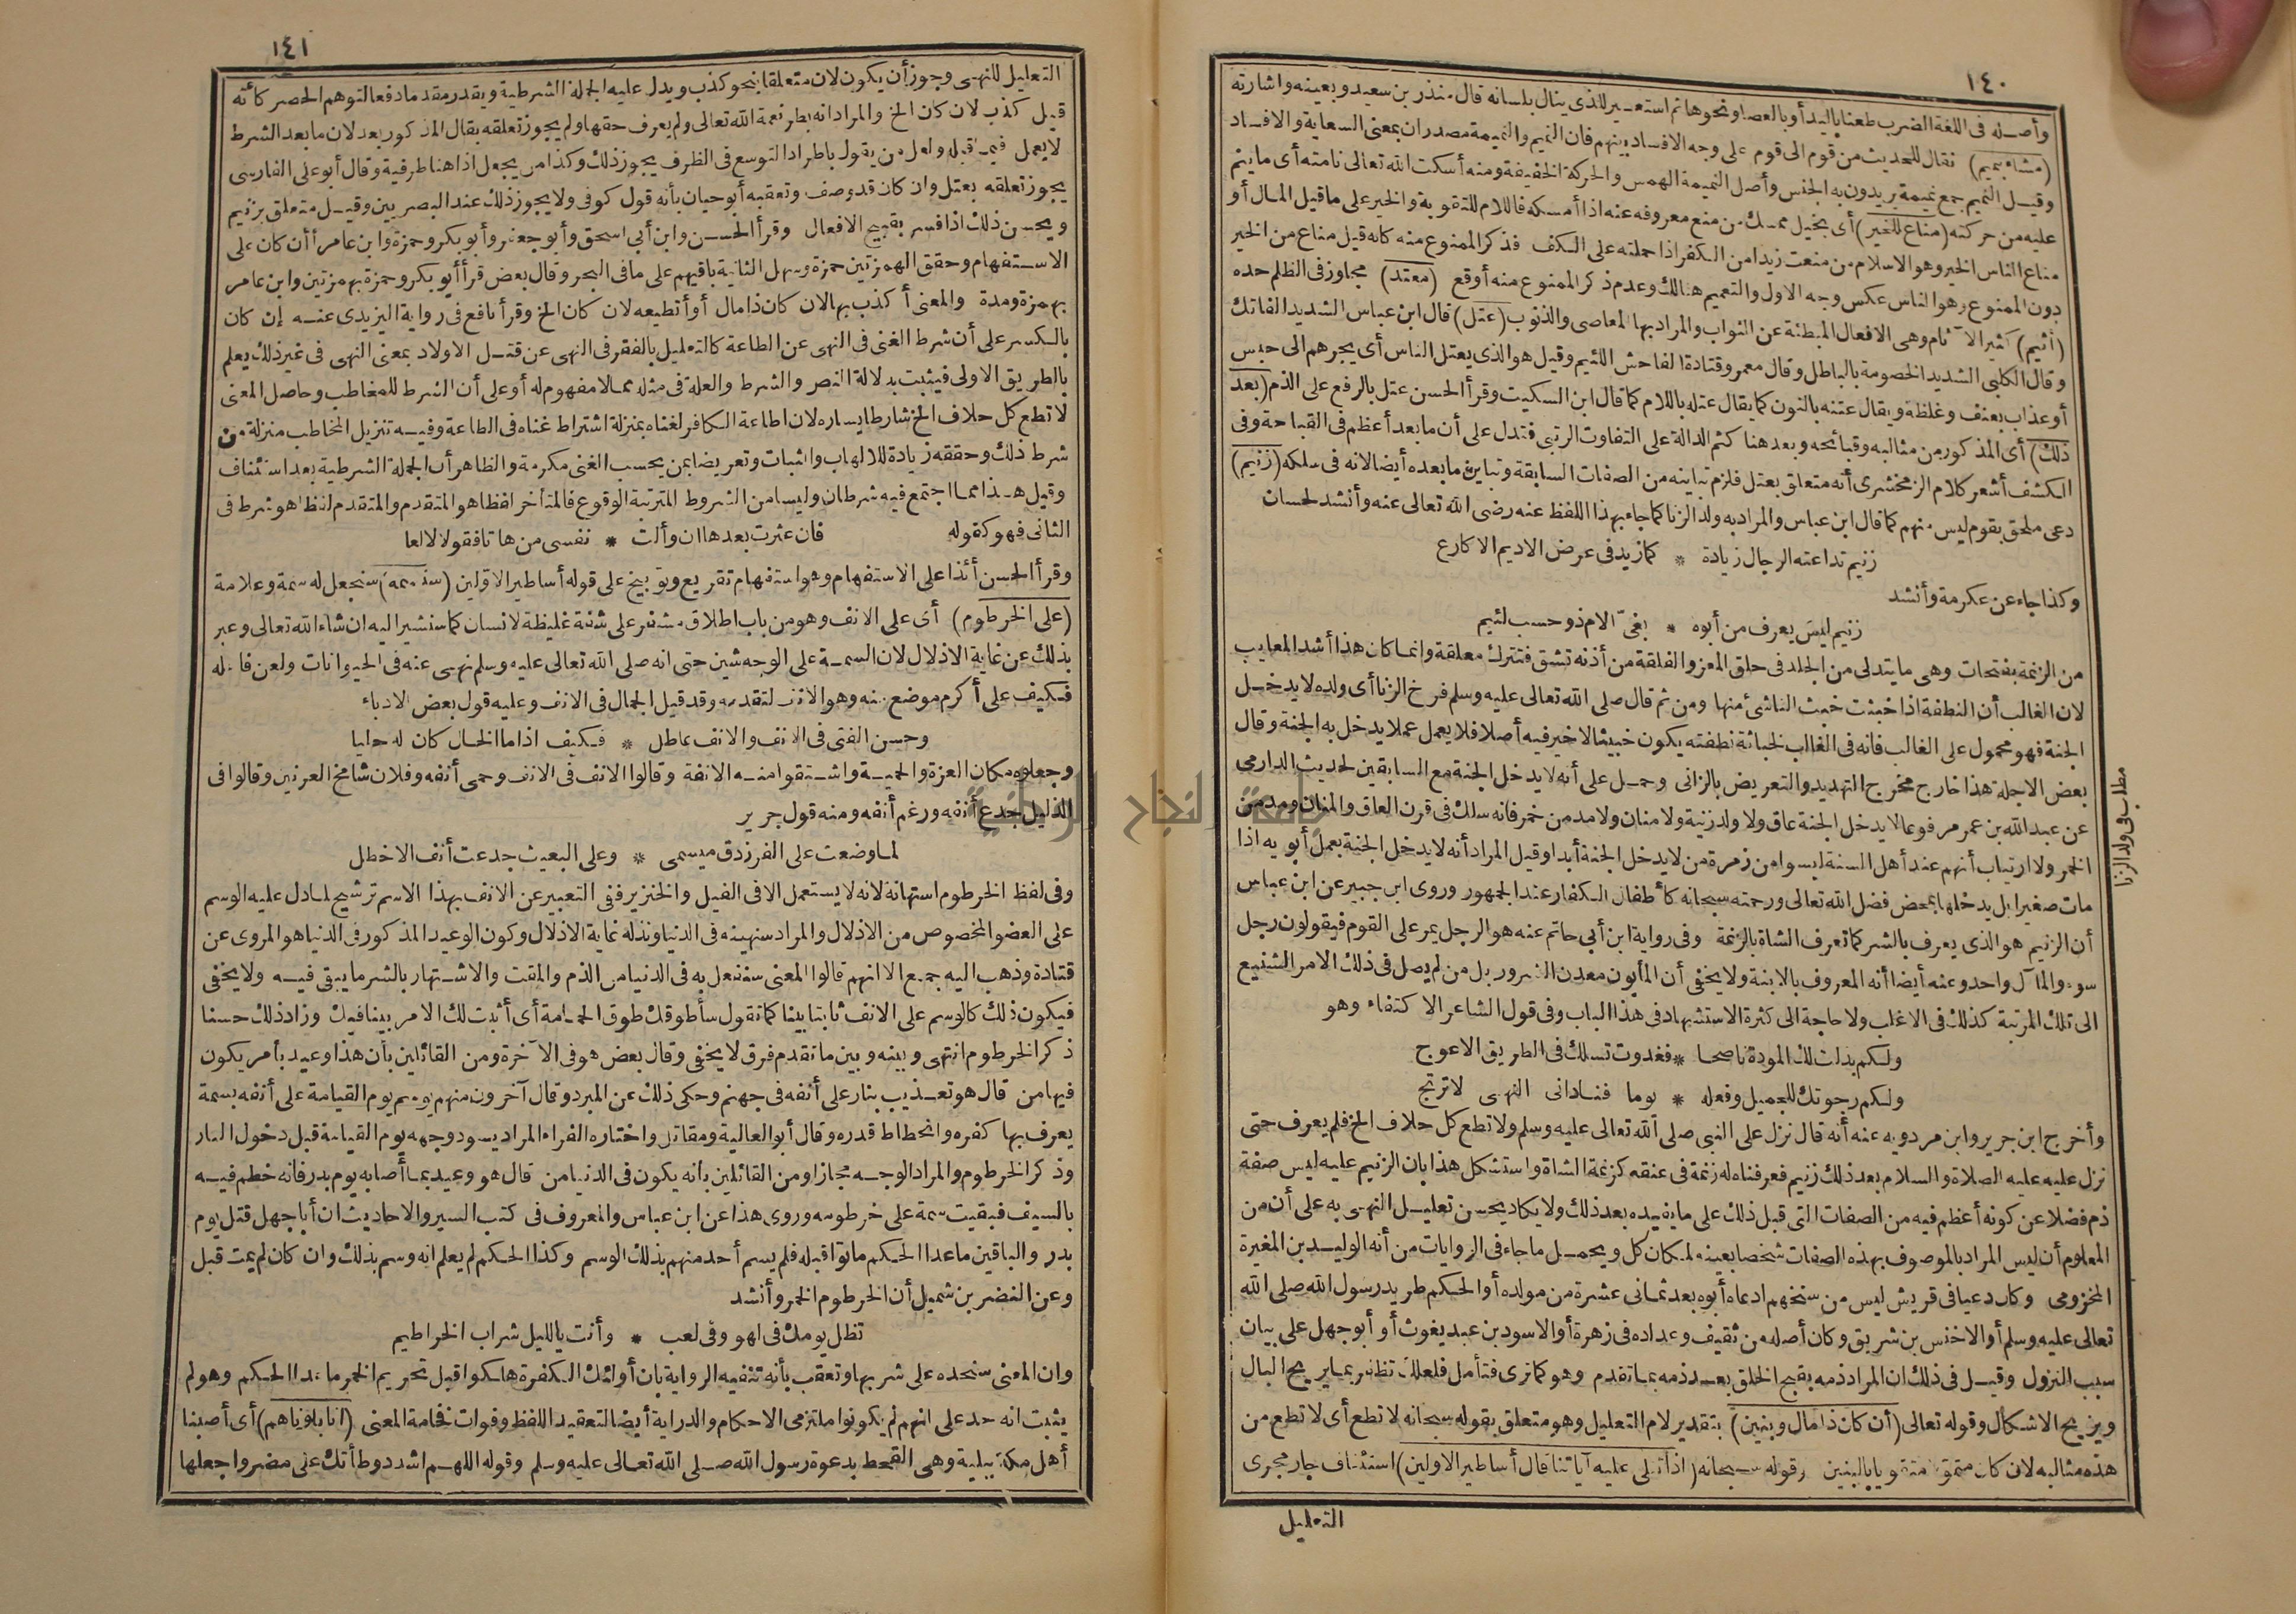 ١٤٠
وأصله فى اللغة الضرب طعنا باليد أو بالعصا ونحوها ثم استعير للذى ينال بلسانه قال منذر بن سعيد وبعينه واشارته
(مشاء بنميم) نقال للحديث من قوم الى قوم على وجه الافساد بينهم فان النميم والنميمة مصدران بمعنى السعاية والافساد
وقيل النميم جمع نميمة يريدون به الجنس وأصل النميمة الهمس والحركة الخفيفة ومنه أسكت الله تعالى نامته أى ما ينم
عليه من حركته (مناع للخير) أى بخيل ممسك من منع معروفه عنه اذا أمسكه فاللام للتقوية والخير على ما قيل المال أو
مناع الناس الخير وهو الاسلام من منعت زيدا من الكفر اذا حملته على الكف فذكر الممنوع منه كانه قيل مناع من الخير
دون الممنوع وهو الناس عكس وجه الاول والتعميم هنالك وعدم ذكر الممنوع منه أوقع (معتد) مجاوز فى الظلم حده
(أثيم) كثير الآثام وهى الافعال المبطئة عن الثواب والمراد بها المعاصى والذنوب (عتل) قال ابن عباس الشديد الفاتك
وقال الكلبى الشديد الخصومة بالباطل وقال معمر وقتادة الفاحش اللئيم وقيل هو الذى يعتل الناس أى يجرهم الى حبس
أو عذاب بعنف وغلظة ويقال عتنه بالنون كما يقال عتله باللام كما قال ابن السكيت وقرأ الحسن عتل بالرفع على الذم (بعد
ذلك) أى المذكور من مثالبه وقبائحه وبعد هنا كثم الدالة على التفاوت الرتبى فتدل على أن ما بعد أعظم فى القباحة وفى
الكشف أشعر كلام الزمخشرى أنه متعلق بعتل فلزم تباينه من الصفات السابقة وتباين ما بعده أيضا لانه فى سلكه (زنيم)
دعى ملحق بقوم ليس منهم كما قال ابن عباس والمراد به ولد الزنا كما جاء بهذا اللفظ عنه رضى الله تعالى عنه وأنشد لحسان
زنيم تداعته الرجال زيادة * كما زيد فى عرض الاديم الاكارع
وكذا جاء عن عكرمة وأنشد
زنيم ليس يعرف من أبوه * بغىّ الام ذو حسب لئيم
من الزنمة بفتحات وهى ما يتدلى من الجلد فى حلق المعز والفلقة من أذنه تشق فتترك معلقة وانما كان هذا أشد المعايب
لان الغالب أن النطفة اذا خبثت خبث الناشئ منها ومن ثم قال صلى الله تعالى عليه وسلم فرخ الزنا أى ولده لا يدخل
الجنة فهو محمول على الغالب فانه فى الغالب لخباثة نطفته يكون خبيثا لا خير فيه أصلا فلا يعمل عملا يدخل به الجنة وقال
بعض الاجلة هذا خارج مخرج التهديد والتعريض بالزانى وحمل على أنه لا يدخل الجنة مع السابقين لحديث الدارمى
عن عبد الله بن عمر مرفوعا لا يدخل الجنة عاق ولا ولد زنية ولا منان ولا مدمن خمر فانه سلك فى قرن العاق والمنان ومدمن
الخمر ولا ارتياب أنهم عند أهل السنة ليسوا من زمرة من لا يدخل الجنة أبدا وقيل المراد أنه لا يدخل الجنة بعمل أبويه اذا
مات صغيرا بل يدخلها بمحض فضل الله تعالى ورحمته سبحانه كأطفال الكفار عند الجمهور وروى ابن جبير عن ابن عباس
أن الزنيم هو الذى يعرف بالشر كما تعرف الشاة بالزنمة وفى رواية ابن أبى حاتم عنه هو الرجل يمر على القوم فيقولون رجل
سوء والمآل واحد وعنه أيضا أنه المعروف بالابنة ولا يخفى أن المأبون معدن الشرور بل من لم يصل فى ذلك الامر الشنيع
الى تلك المرتبة كذلك فى الاغلب ولا حاجة الى كثرة الاستشهاد فى هذا الباب وفى قول الشاعر الاكتفاء وهو
ولكم بذلت لك المودة ناصحا * فغدوت تسلك فى الطريق الاعوج
ولكم رجوتك للجميل وفعله * يوما فنادانى النهى لا ترتج
وأخرج ابن جرير وابن مردويه عنه أنه قال نزل على النبى صلى الله تعالى عليه وسلم ولا تطع كل حلاف الخ فلم يعرف حتى
نزل عليه عليه الصلاة والسلام بعد ذلك زنيم فعرفناه له زنمة فى عنقه كزنمة الشاة واستشكل هذا بان الزنيم عليه ليس صفة
ذم فضلا عن كونه أعظم فيه من الصفات التى قبل ذلك على ما يفيده بعد ذلك ولا يكاد يحسن تعليل النهى به على أن من
المعلوم أن ليس المراد بالموصوف بهذه الصفات شخصا بعينه لمكان كل ويحمل ما جاء فى الروايات من أنه الوليد بن المغيرة
المخزومى وكان دعيا فى قريش ليس من سنخهم ادعاه أبوه بعد ثمانى عشرة من مولده أو الحكم طريد رسول الله صلى الله
تعالى عليه وسلم أو الاخنس بن شريق وكان أصله من ثقيف وعداده فى زهرة أو الاسود بن عبد يغوث أو أبو جهل على بيان
سبب النزول وقيل فى ذلك ان المراد ذمه بقبح الخلق بعد ذمه بما تقدم وهو كما ترى فتأمل فلعلك تظفر بما يريح البال
ويزيح الاشكال وقوله تعالى (أن كان ذا مال وبنين) بتقدير لام التعليل وهو متعلق بقوله سبحانه لا تطع أى لا تطع من
هذه مثالبه لان كان متمولا متقويا بالبنين وقوله سبحانه (اذا تتلى عليه آياتنا قال أساطير الاولين) استئناف جار مجرى
التعليل
مطلب فى ولد الزنا
١٤١
التعليل للنهى وجوز أن يكون لان متعلقا بنحو كذب ويدل عليه الجملة الشرطية ويقدر مقدما دفعا لتوهم الحصر كأنه
قيل كذب لان كان الخ والمراد انه بطر نعمة الله تعالى ولم يعرف حقها ولم يجوز تعلقه بقال المذكور بعد لان ما بعد الشرط
لا يعمل فيما قبله ولعل من يقول باطراد التوسع فى الظرف يجوز ذلك وكذا من يجعل اذا هنا ظرفية وقال أبو على الفارسى
يجوز تعلقه بعتل وان كان قد وصف وتعقبه أبو حيان بأنه قول كوفى ولا يجوز ذلك عند البصريين وقيل متعلق بزنيم
ويحسن ذلك اذا فسر بقبيح الافعال وقرأ الحسن وابن أبى اسحق وأبو جعفر وأبو بكر وحمزة وابن عامر أأن كان على
الاستفهام وحقق الهمزتين حمزة وسهل الثانية باقيهم على ما فى البحر وقال بعض قرأ أبو بكر وحمزة بهمزتين وابن عامر
بهمزة ومدة والمعنى أكذب بها لان كان ذا مال أو أتطيعه لان كان الخ وقرأ نافع فى رواية اليزيدى عنه إن كان
بالكسر على أن شرط الغنى فى النهى عن الطاعة كالتعليل بالفقر فى النهى عن قتل الاولاد بمعنى النهى فى غير ذلك يعلم
بالطريق الاولى فيثبت بدلالة النص والشرط والعلة فى مثله مما لا مفهوم له أو على أن الشرط للمخاطب وحاصل المعنى
لا تطع كل حلاف الخ شارطا يساره لان اطاعة الكافر لغناه بمنزلة اشتراط غناه فى الطاعة وفيه تنزيل المخاطب منزلة من
شرط ذلك وحققه زيادة للالهاب والثبات وتعريضا بمن يحسب الغنى مكرمة والظاهر أن الجملة الشرطية بعد استئناف
وقيل هذا مما اجتمع فيه شرطان وليسا من الشروط المترتبة الوقوع فالمتأخر لفظا هو المتقدم والمتقدم لفظا هو شرط فى
الثانى فهو كقوله فان عثرت بعدها ان وألت * نفسى من هاتا فقولا لا لعا
وقرأ الحسن أئذا على الاستفهام وهو استفهام تقريع وتوبيخ على قوله أساطير الاولين (سنسمه) سنجعل له سمة وعلامة
(على الخرطوم) أى على الانف وهو من باب اطلاق مشفر على شفة غليظة لانسان كما سنشير اليه ان شاء الله تعالى وعبر
بذلك عن غاية الاذلال لان السمة على الوجه شين حتى انه صلى الله تعالى عليه وسلم نهى عنه فى الحيوانات ولعن فاعله
فكيف على أكرم موضع منه وهو الانف لتقدمه وقد قيل الجمال فى الانف وعليه قول بعض الادباء
وحسن الفتى فى الانف والانف عاطل * فكيف اذا ما الخال كان له حليا
وجعلوه مكان العزة والحمية واشتقوا منه الانفة وقالوا الانف فى الانف وحمى أنفه وفلان شامخ العرنين وقالوا فى
الذليل جدع أنفه ورغم أنفه ومنه قول جرير
لما وضعت على الفرزدق ميسمى * وعلى البعيث جدعت أنف الاخطل
وفى لفظ الخرطوم استهانة لانه لا يستعمل الا فى الفيل والخنزير ففى التعبير عن الانف بهذا الاسم ترشيح لما دل عليه الوسم
على العضو المخصوص من الاذلال والمراد سنهينه فى الدنيا ونذله غاية الاذلال وكون الوعيد المذكور فى الدنيا هو المروى عن
قتادة وذهب اليه جمع الا انهم قالوا المعنى سنفعل به فى الدنيا من الذم والمقت والاشتهار بالشر ما يبقى فيه ولا يخفى
فيكون ذلك كالوسم على الانف ثابتا بينا كما تقول سأطوقك طوق الحمامة أى أثبت لك الامر بينا فيك وزاد ذلك حسنا
ذكر الخرطوم انتهى وبينه وبين ما تقدم فرق لا يخفى وقال بعض هو فى الآخرة ومن القائلين بأن هذا وعيد بأمر يكون
فيها من قال هو تعذيب بنار على أنفه فى جهنم وحكى ذلك عن المبرد وقال آخرون منهم يوسم يوم القيامة على أنفه بسمة
يعرف بها كفره وانحطاط قدره وقال أبو العالية ومقاتل واختاره الفراء المراد يسود وجهه يوم القيامة قبل دخول النار
وذكر الخرطوم والمراد الوجه مجازا ومن القائلين بانه يكون فى الدنيا من قال هو وعيد بما أصابه يوم بدر فانه خطم فيه
بالسيف فبقيت سمة على خرطومه وروى هذا عن ابن عباس والمعروف فى كتب السير والاحاديث ان أبا جهل قتل يوم
بدر والباقين ماعدا الحكم ماتوا قبله فلم يسم أحد منهم بذلك الوسم وكذا الحكم لم يعلم انه وسم بذلك وان كان لم يمت قبل
وعن النضر بن شميل أن الخرطوم الخمر وأنشد
تظل يومك فى لهو وفى لعب * وأنت بالليل شراب الخراطيم
وان المعنى سنحده على شربها وتعقب بأنه تنفيه الرواية بان أولئك الكفرة هلكوا قبل تحريم الخمر ماعدا الحكم وهو لم
يثبت انه حد على انهم لم يكونوا ملتزمى الاحكام والدراية أيضا لتعقيد اللفظ وفوات فخامة المعنى (انا بلوناهم) أى أصبنا
أهل مكة ببلية وهى القحط بدعوة رسول الله صلى الله تعالى عليه وسلم وقوله اللهم اشدد وطأتك على مضر واجعلها
جامعة النجاح الوطنية